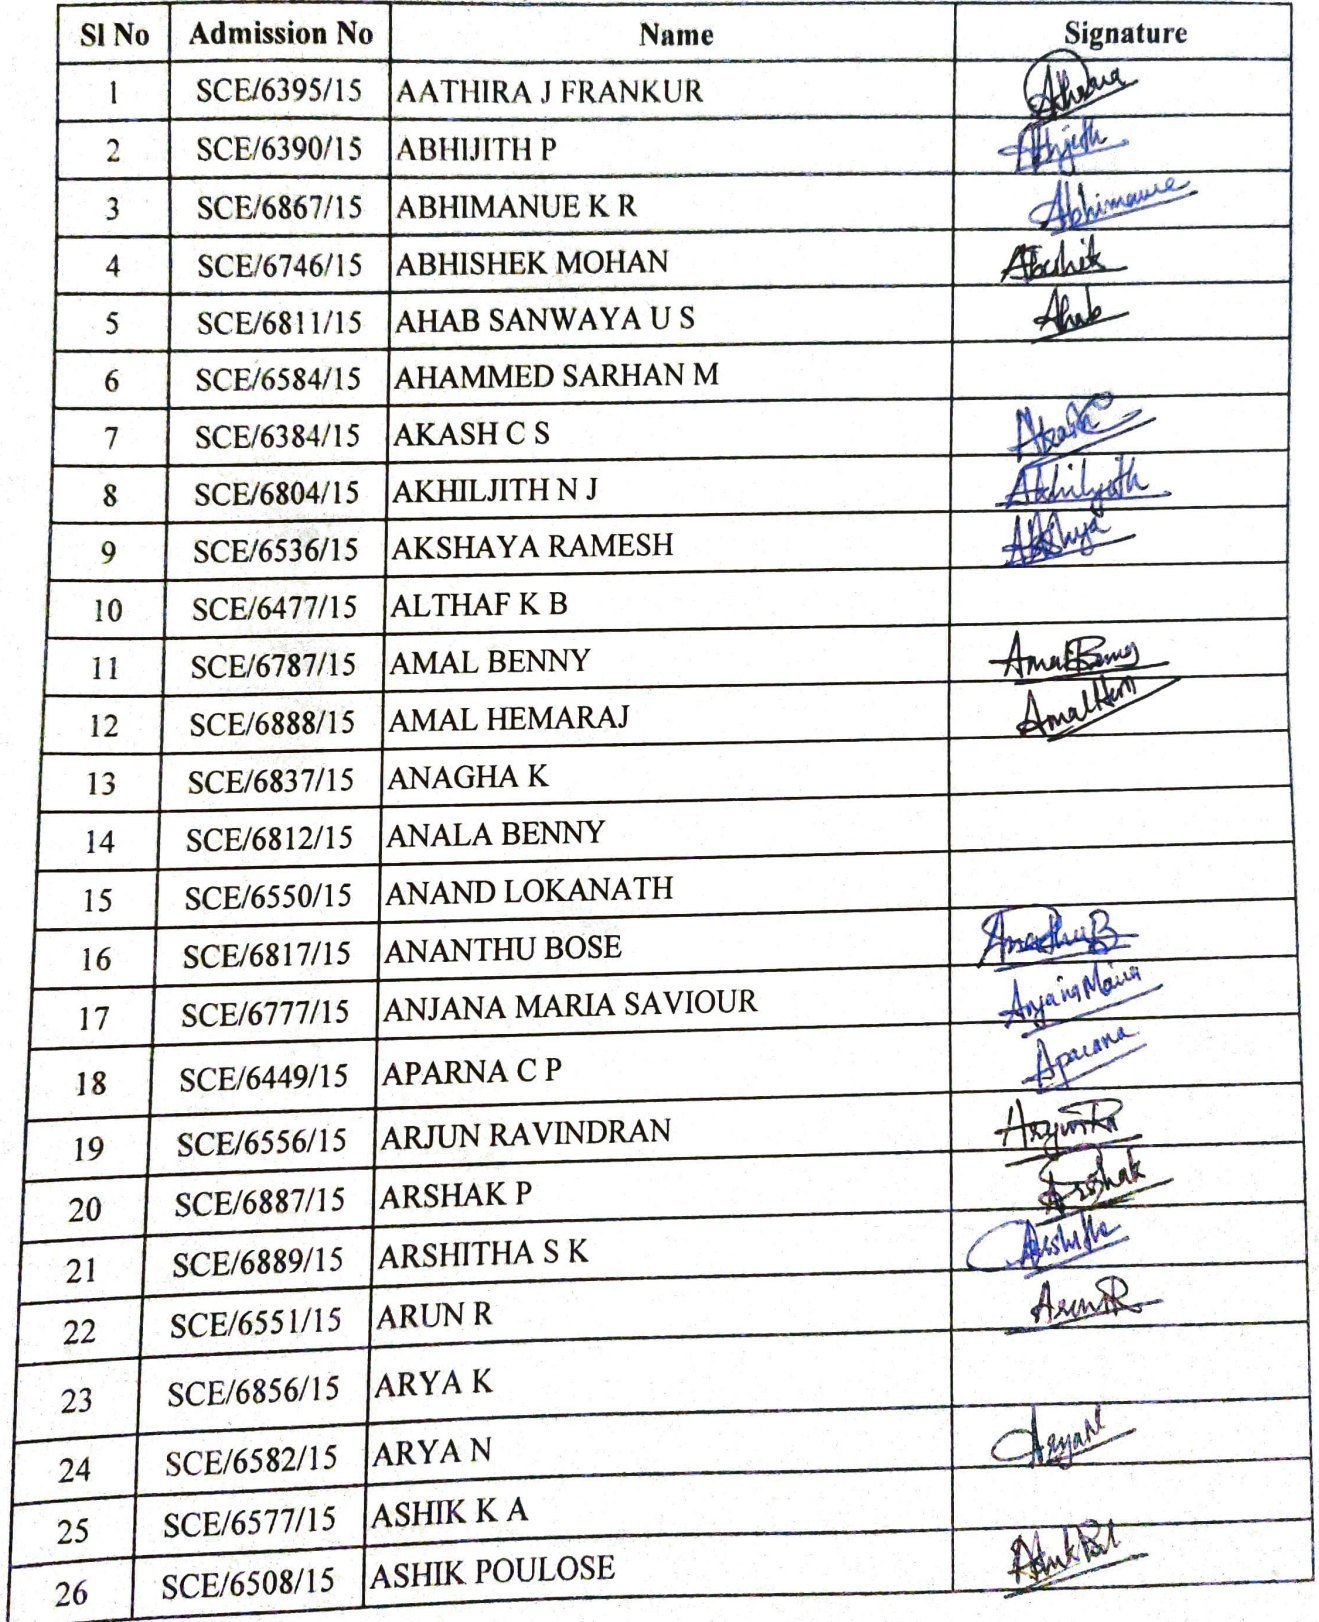 Sl No Admission No Name Signature
1 SCE/6395/15 AATHIRA J FRANKUR
2 SCE/6390/15 ABHIJITH P Abhijith
3 SCE/6867/15 ABHIMANUE K R Abhimanue
4 SCE/6746/15 ABHISHEK MOHAN
5 SCE/6811/15 AHAB SANWAYA U S Ahab
6 SCE/6584/15 AHAMMED SARHAN M
7 SCE/6384/15 AKASH C S Akash
8 SCE/6804/15 AKHILJITH N J Akhiljith
9 SCE/6536/15 AKSHAYA RAMESH
10 SCE/6477/15 ALTHAF K B
11 SCE/6787/15 AMAL BENNY Amal Benny
12 SCE/6888/15 AMAL HEMARAJ Amal Hem
13 SCE/6837/15 ANAGHA K
14 SCE/6812/15 ANALA BENNY
15 SCE/6550/15 ANAND LOKANATH
16 SCE/6817/15 ANANTHU BOSE Ananthu B
17 SCE/6777/15 ANJANA MARIA SAVIOUR Anjana Maria
18 SCE/6449/15 APARNA C P Aparna
19 SCE/6556/15 ARJUN RAVINDRAN Arjun Ra
20 SCE/6887/15 ARSHAK P Arshak
21 SCE/6889/15 ARSHITHA S K Arshitha
22 SCE/6551/15 ARUN R Arun R
23 SCE/6856/15 ARYA K
24 SCE/6582/15 ARYA N Arya N
25 SCE/6577/15 ASHIK K A
26 SCE/6508/15 ASHIK POULOSE